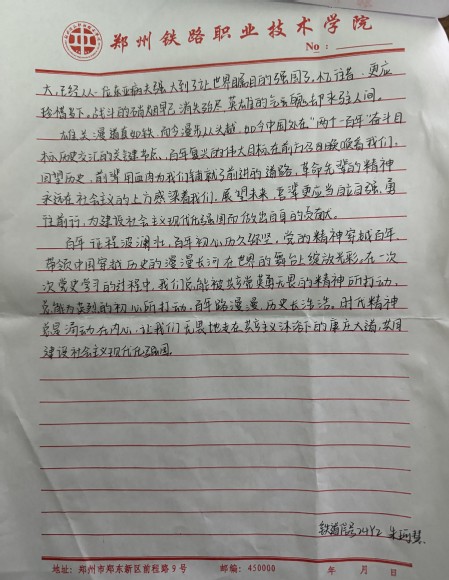 郑州铁路职业技术学院
No:
大,已经从一个东亚病夫强大到了让世界瞩目的强国了。忆往昔,更应
珍惜当下,战斗的硝烟早已消失殆尽,英雄的气魄却永驻人间。
雄关漫道真如铁,而今漫步从头越,如今中国处在"两个一百年"奋斗目
标历史交汇的关键节点,百年复兴的伟大目标在前方召唤着我们,
回望历史,前辈用血肉为我们铺就了前进的道路,革命先辈的精神
永远在社会主义的上方感染着我们,展望未来,吾辈更应当自立自强,勇
往前行,为建设社会主义现代化强国而做出自身的贡献。
百年征程波澜壮,百年初心历久弥坚,党的精神穿越百年,
带领中国穿越历史的漫漫长河在世界的舞台上绽放光彩,在一次
次党史学习的过程中,我们总能被共党英勇无畏的精神所打动,
总能为英烈的初心所打动,百年路漫漫,历史长浩浩。时代精神
总是涌动在内心,让我们无畏地走在共产主义沐浴下的康庄大道,共同
建设社会主义现代化强国。
铁道信号24Y2 朱珂慧
地址:郑州市郑东新区前程路9号 邮编:450000 年 月 日